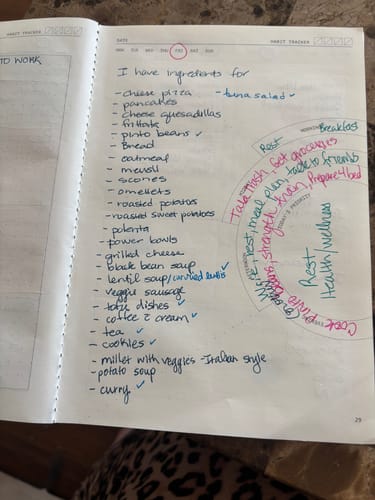 HABIT TRACKER
TO WORK
DATE
HABIT TRACKER
MON TUE WED THU FRI SAT SUN
I have ingredients for
- cheese pizza - tuna salad ✓
- pancakes
- cheese quesadillas
- frittata
- pinto beans ✓
- Bread
- oatmeal
- scones
- omellets
- roasted potatoes
- roasted sweet potatoes
- polenta
- power bowls
- grilled cheese
- black bean soup ✓
- lentil soup/curried lentils ✓
- veggie sausage
- tofu dishes ✓
- coffee & cream ✓
- tea ✓
- cookies ✓
- millet with veggies - Italian style
- potato soup
- curry ✓
MORNING
Breakfast
Rest
Take trash, get groceries
Rest, meal plan, talk to friends
strength train, Prepare 4 bed
TODAY'S PRIORITY
Rest
Health/Wellness
Cook pinto beans
29